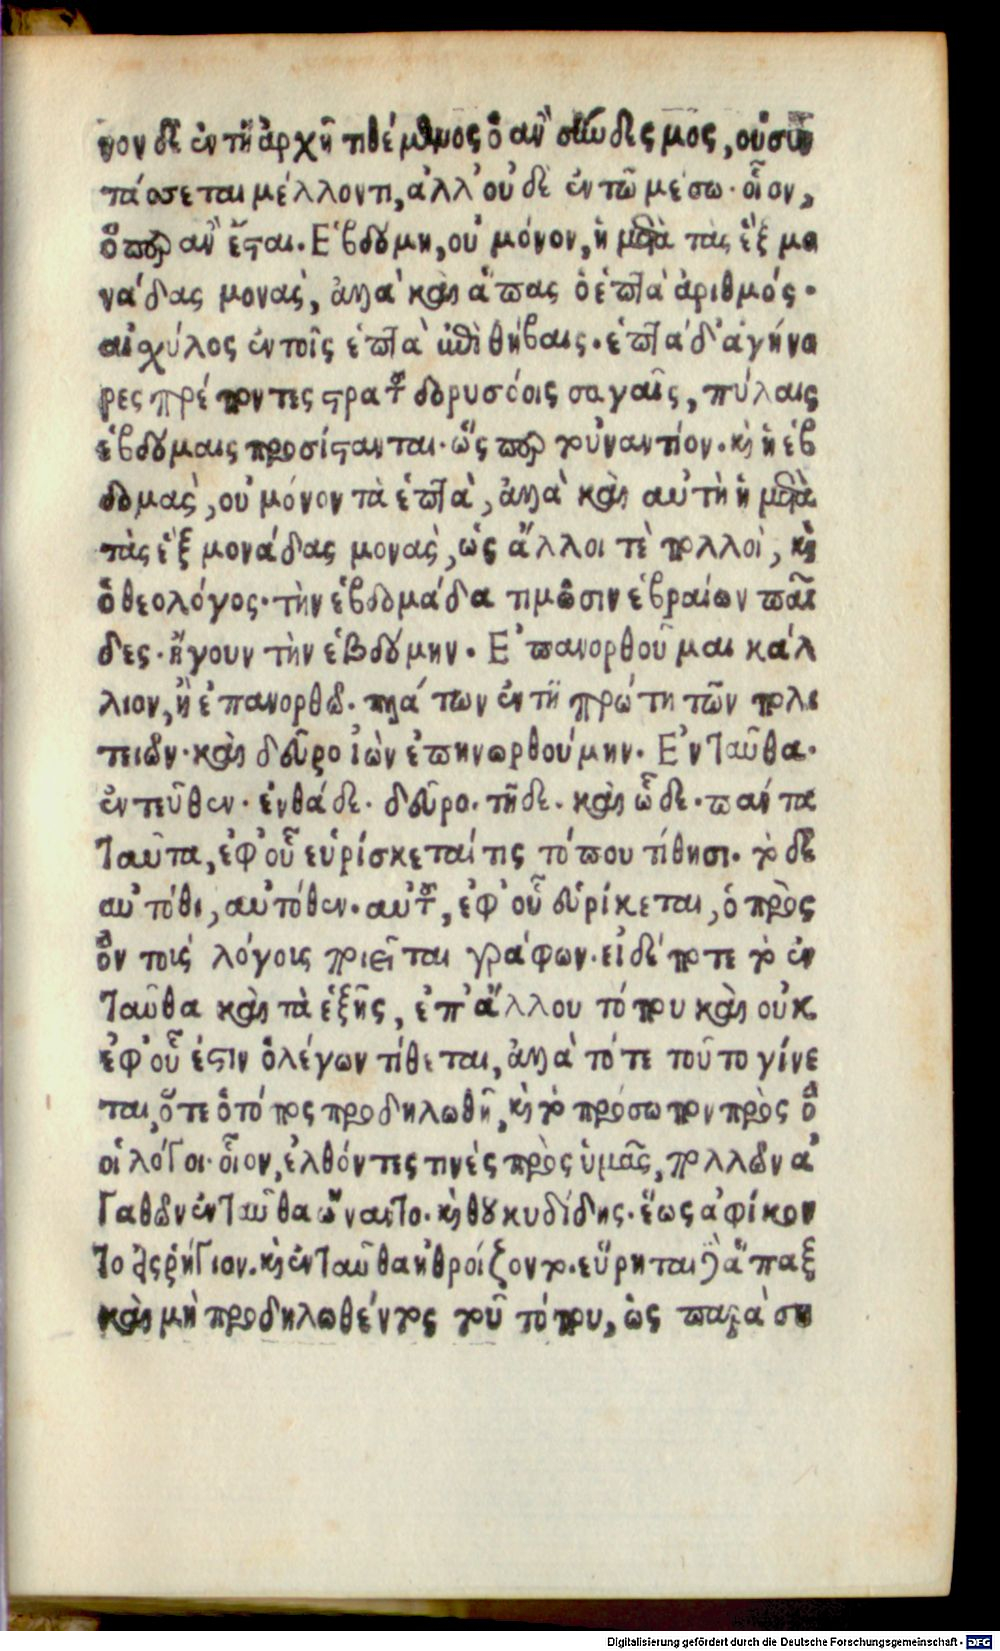 νον δὲ ἐν τῇ ἀρχῇ τιθέμενος ὁ ἂν σύνδεσμος, οὐ συν
τάσσεται μέλλοντι, ἀλλ' οὐδὲ ἐν τῷ μέσῳ· οἷον,
ὅπου ἂν ἔσται. Ἑβδόμη, οὐ μόνον, ἡ μετὰ τὰς ἓξ μο
νάδας μονάς, ἀλλὰ καὶ ἅπας ὁ ἑπτὰ ἀριθμός·
αἰσχύλος ἐν τοῖς ἑπτὰ ἐπὶ θήβαις. ἑπτὰ δ' ἀγήνο
ρες πρέποντες στρατοῦ δορυσόοις σαγαῖς, πύλαις
ἑβδόμαις προσίστανται. ὥς που τοὐναντίον. καὶ ἡ ἑβ
δομὰς, οὐ μόνον τὰ ἑπτὰ, ἀλλὰ καὶ αὐτὴ ἡ μετὰ
τὰς ἓξ μονάδας μονὰς, ὡς ἄλλοι τὲ πολλοὶ, καὶ
ὁ θεολόγος. τὴν ἑβδομάδα τιμῶσιν ἑβραίων παῖ
δες. ἤγουν τὴν ἑβδόμην. Ἐπανορθοῦμαι κάλ
λιον, ἢ ἐπανορθῶ. πλάτων ἐν τῇ πρώτῃ τῶν πολι
τειῶν. καὶ δεῦρο ἰὼν ἐπηνωρθούμην. Ἐνταῦθα.
ἐντεῦθεν. ἐνθάδε. δεῦρο. τῇδε. καὶ ὧδε. πάντα
ταῦτα, ἐφ' οὗ εὑρίσκεταί τις τόπου τίθησι. τὸ δὲ
αὐτόθι, αὐτόθεν. αὐτοῦ, ἐφ' οὗ εὑρίκεται, ὁ πρὸς
ὃν τοὺς λόγους ποιεῖται γράφων. εἰ δέ ποτε τὸ ἐν
ταῦθα καὶ τὰ ἑξῆς, ἐπ' ἄλλου τόπου καὶ οὐκ
ἐφ' οὗ ἐστὶν ὁ λέγων τίθεται, ἀλλὰ τότε τοῦτο γίνε
ται, ὅτε ὁ τόπος προδηλωθῇ, καὶ τὸ πρόσωπον πρὸς ὃ
οἱ λόγοι. οἷον, ἐλθόντες τινὲς πρὸς ὑμᾶς, πολλῶν ἀ
γαθῶν ἐνταῦθα ὤναιντο. καὶ θουκυδίδης. ἕως ἀφίκον
το ἐς ῥήγιον. καὶ ἐνταῦθα ἠθροίζοντο. εὕρηται δὲ ἅπαξ
καὶ μὴ προδηλωθέντος τοῦ τόπου, ὡς παρὰ συ
Digitalisierung gefördert durch die Deutsche Forschungsgemeinschaft - DFG